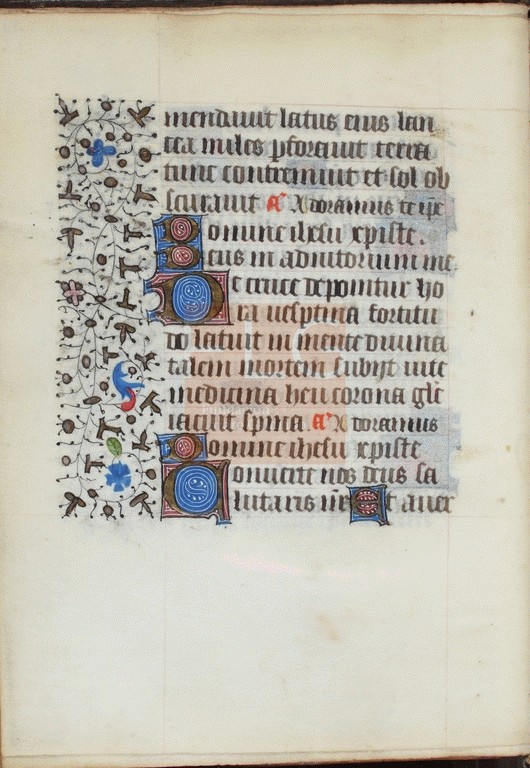 mendauit latus eius lan
cea miles pforauit terra
tunc contremuit et sol ob
scurauit a&#772; Adoramus te xpe
Domine ihesu xpiste.
Deus in adiutorium me
De cruce deponitur ho
ra uesptina fortitu
do latuit in mente diuina
talem mortem subijt uite
medicina heu corona glē
iacuit spina a&#772; Adoramus
Domine ihesu xpiste
Conuerte nos deus sa
lutaris nr̄ Et auer